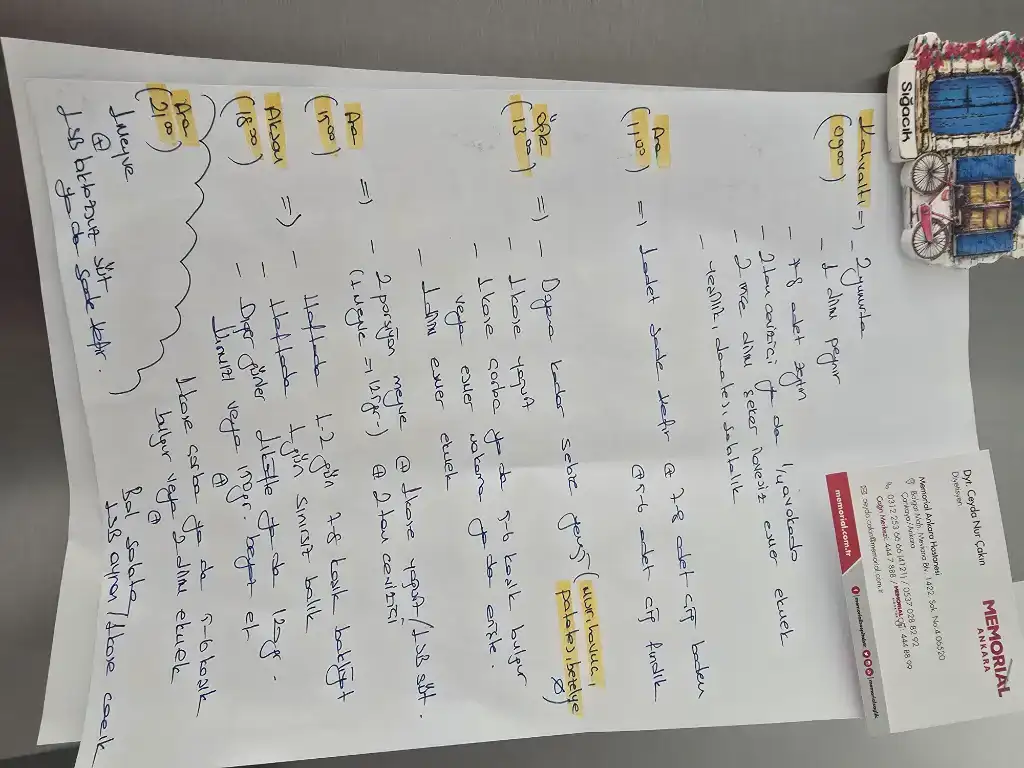 Kahvaltı => - 2 yumurta
(09⁰⁰) - 1 dilim peynir
- 7-8 adet zeytin
- 2 tam ceviziçi ya da 1/4 avokado
- 2 ince dilim şeker ilavesiz ekmek
- yeşillik, domates, salatalık
Ara => 1 adet sade kefir ⊕ 7-8 adet çiğ badem
(11⁰⁰) ⊕ 5-6 adet çiğ fındık
Öğle => - Doyana kadar sebze yemeği (mısır, havuç,
(13⁰⁰) patates, bezelye
- 1 kase yoğurt
- 1 kase çorba ya da 5-6 kaşık bulgur
veya makarna ya da erişte.
- 1 dilim ekmek
Ara => - 2 porsiyon meyve ⊕ 1 kase yoğurt / 1 SB süt.
(15⁰⁰) (1 meyve => ) ⊕ 2 tam ceviziçi
Akşam => - Haftada 1-2 gün 7-8 kaşık bakliyat
(18⁰⁰) - Haftada 1 gün sınırsız balık
- Diğer günler 1 köfte ya da 120gr.
hindi veya 150gr. beyaz et
⊕
1 kase çorba ya da 5-6 kaşık
bulgur veya 2 dilim ekmek
⊕
Bol salata
1 SB ayran / 1 kase cacık
Ara
(21⁰⁰)
1 meyve
⊕
1 SB laktozsuz süt
ya da sade kefir.
Sığacık
MEMORIAL
ANKARA
Dyt. Ceyda Nur Çakın
Diyetisyen
Memorial Ankara Hastanesi
Balgat Mah. Mevlana Blv. 1422. Sok. No:4 06520
Çankaya/Ankara
0312 253 66 66 (4121) / 0537 028 82 92
Çağrı Merkezi: 444 7 888 / 444 88 99
ceyda.cakin@memorial.com.tr
memorial.com.tr